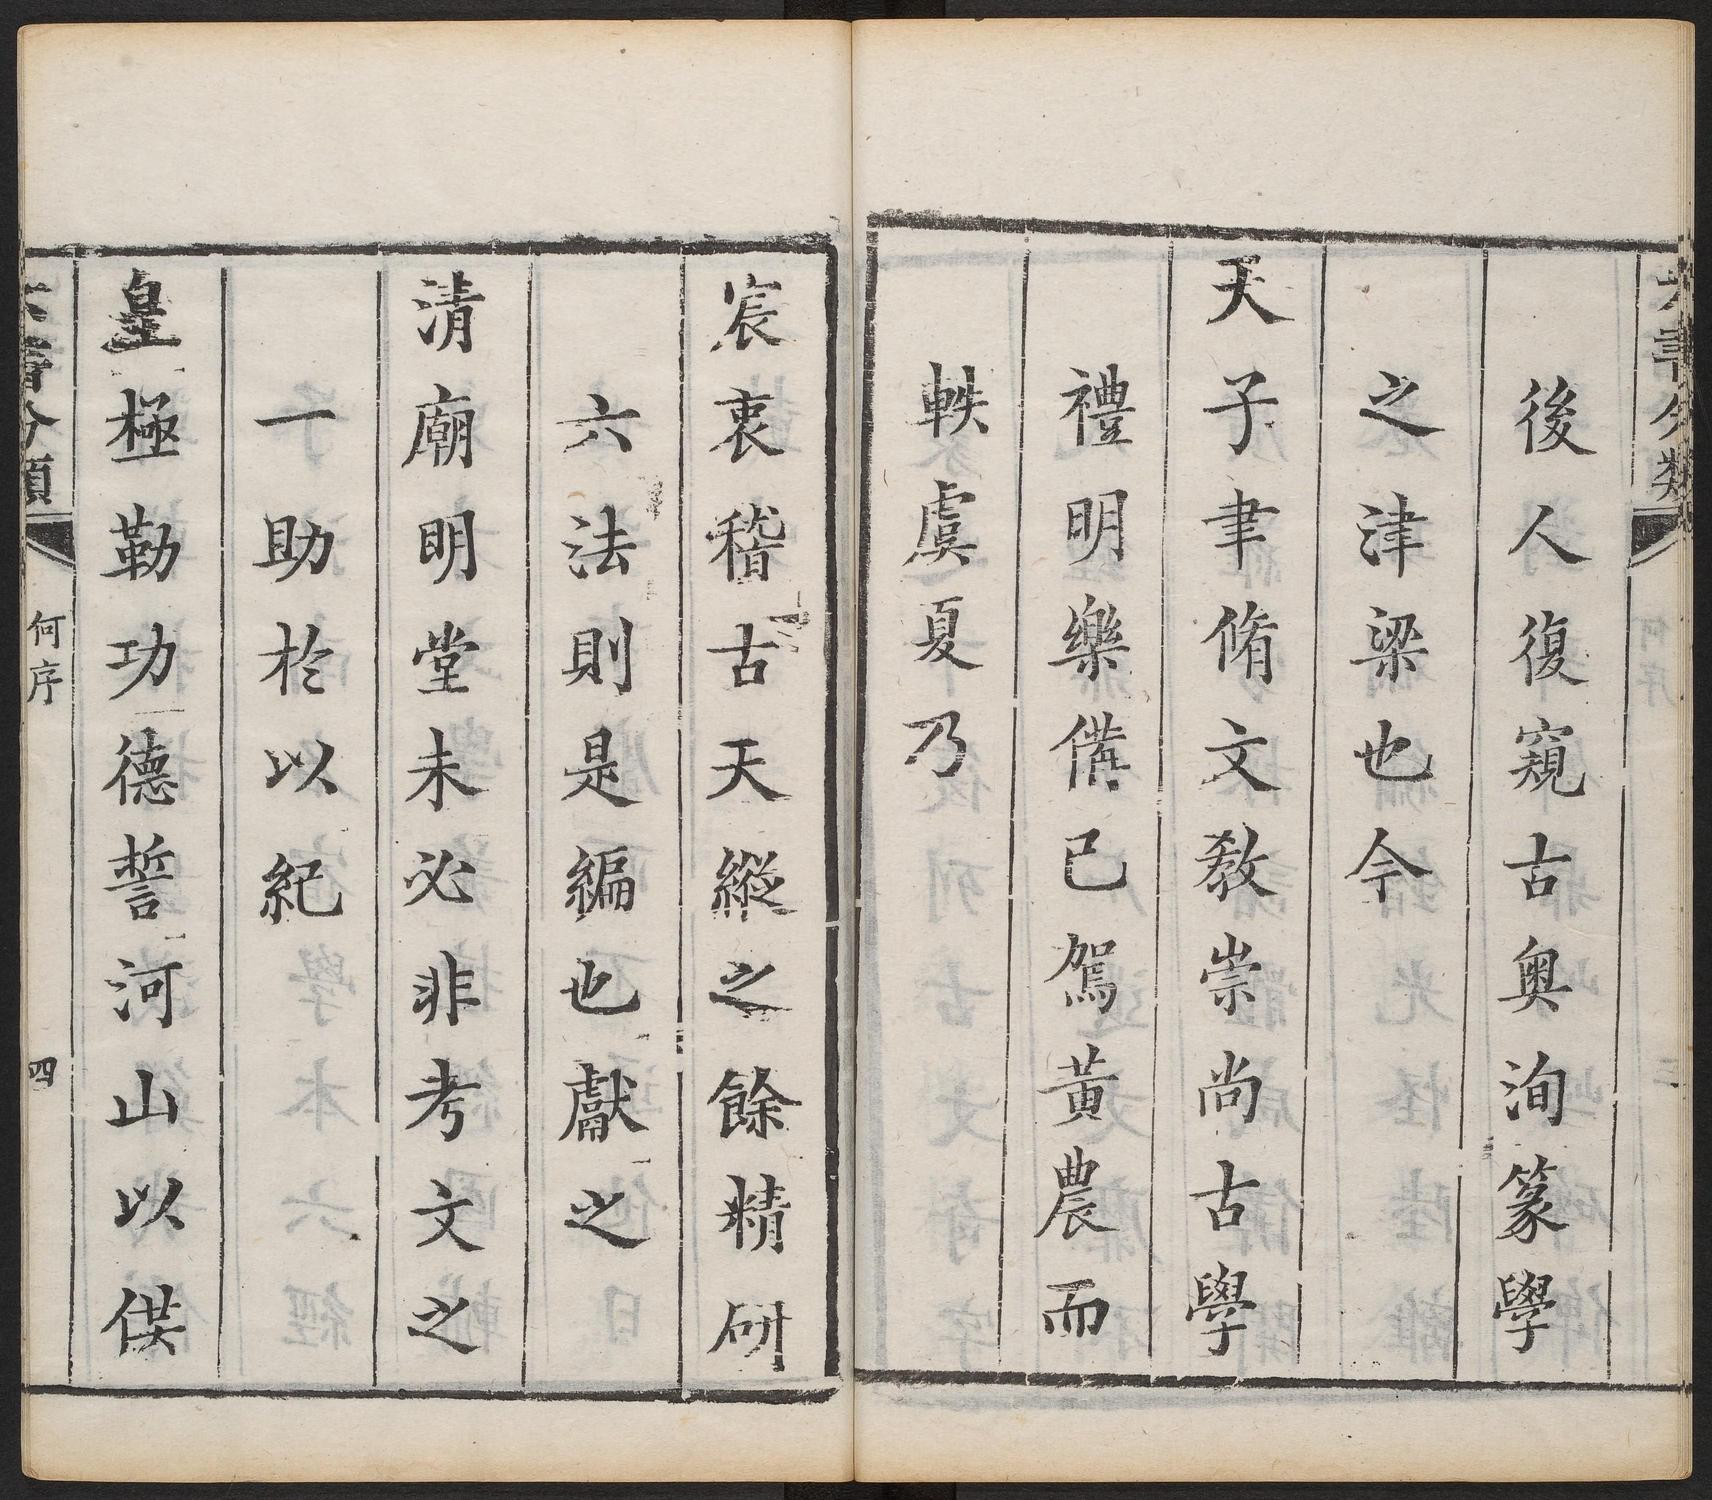 六書分類
後人復窺古奥洵篆學
之津梁也今
天子聿脩文教崇尚古學
禮明樂備已駕黃農而
軼虞夏乃
宸衷稽古天縱之餘精研
六法則是編也獻之
清廟明堂未必非考文之
一助於以紀
皇極勒功德誓河山以俟
六書分類
何序
四